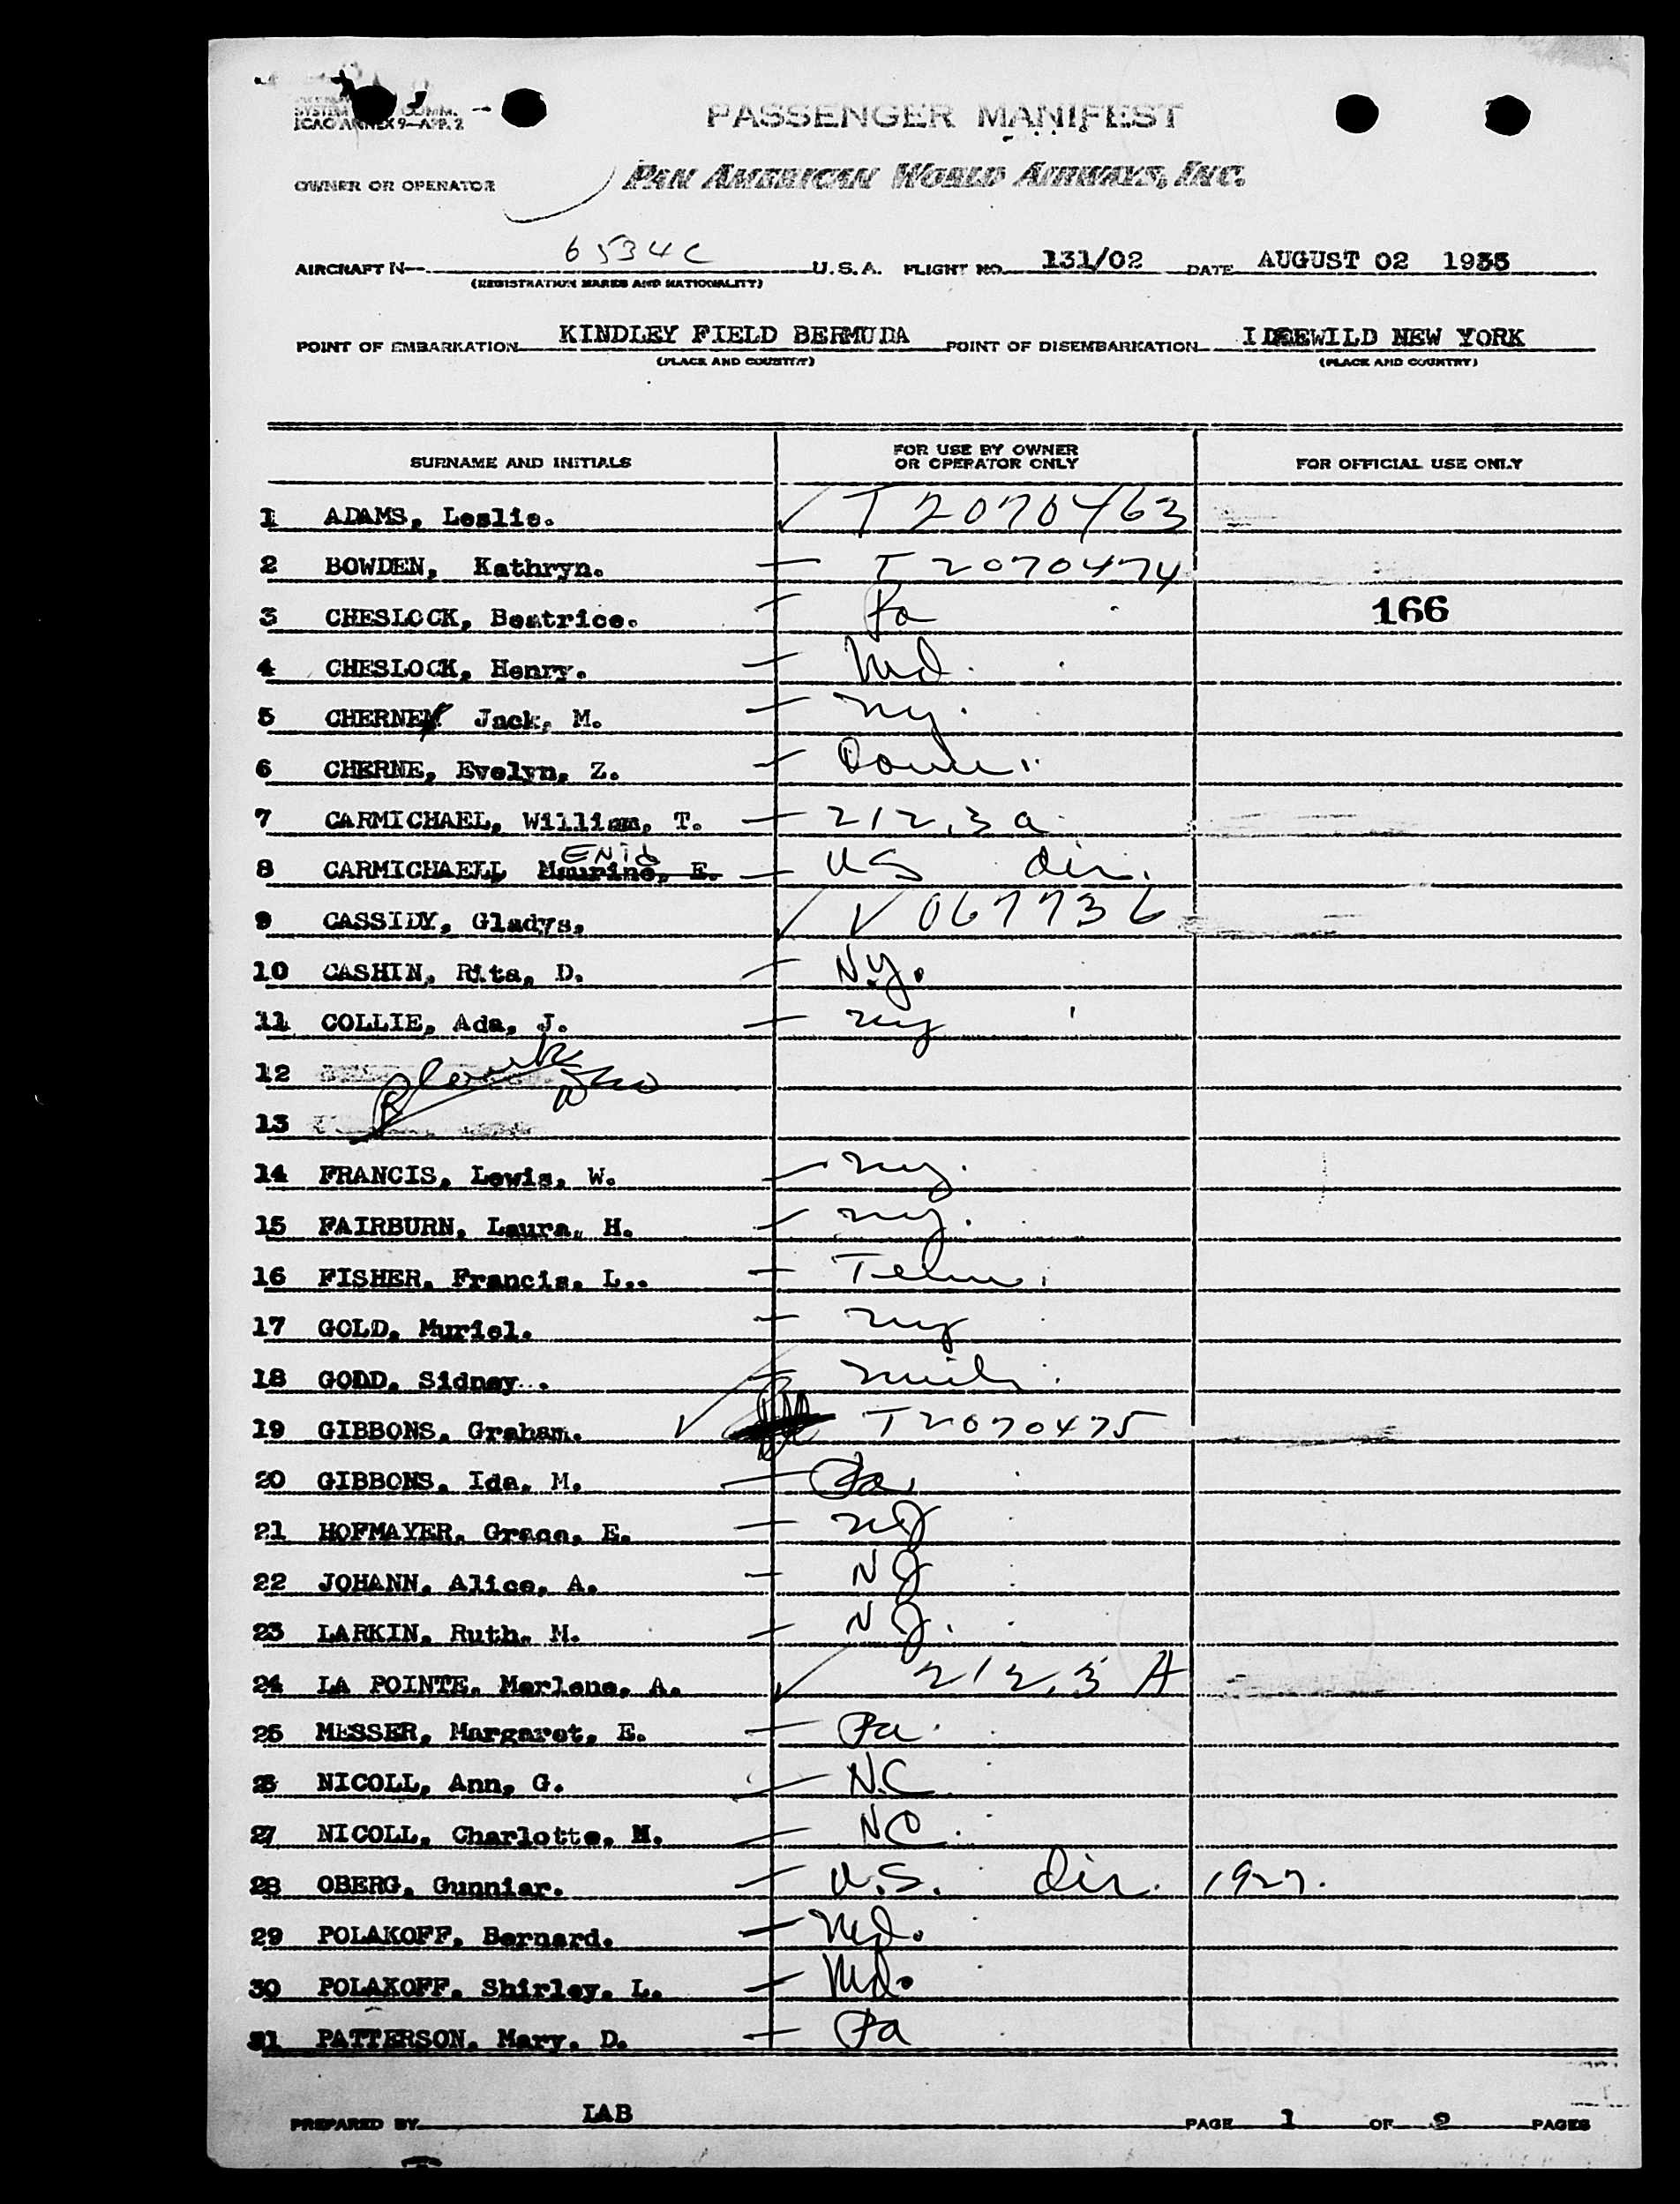 SYSTEM COMM.
ICAO ANNEX 9—APP. 2
PASSENGER MANIFEST
OWNER OR OPERATOR PAN AMERICAN WORLD AIRWAYS, INC.
AIRCRAFT N— 6534C U.S.A. FLIGHT NO. 131/02 DATE AUGUST 02 1955
(REGISTRATION MARKS AND NATIONALITY)
POINT OF EMBARKATION KINDLEY FIELD BERMUDA POINT OF DISEMBARKATION IDLEWILD NEW YORK
(PLACE AND COUNTRY) (PLACE AND COUNTRY)
SURNAME AND INITIALS FOR USE BY OWNER OR OPERATOR ONLY FOR OFFICIAL USE ONLY
1 ADAMS, Leslie. T2070463
2 BOWDEN, Kathryn. T2070474
3 CHESLOCK, Beatrice. Pa 166
4 CHESLOCK, Henry. Md.
5 CHERNE, Jack, M. ny.
6 CHERNE, Evelyn, Z. Conn.
7 CARMICHAEL, William, T. 212.3a
8 CARMICHAELL, Maurine, E. ENid US div.
9 CASSIDY, Gladys, V067736
10 CASHIN, Rita, D. N.Y.
11 COLLIE, Ada, J. ny
12
13
14 FRANCIS, Lewis, W. ny.
15 FAIRBURN, Laura, H. ny.
16 FISHER, Francis, L.. Tenn.
17 GOLD, Muriel. ny
18 GODD, Sidney.. mich.
19 GIBBONS, Graham. T2070475
20 GIBBONS, Ida, M. Pa
21 HOFMAYER, Grace, E. nJ
22 JOHANN, Alice, A. NJ
23 LARKIN, Ruth, M. NJ.
24 LA POINTE, Marlene, A. 212.3A
25 MESSER, Margaret, E. Pa.
26 NICOLL, Ann, G. N.C.
27 NICOLL, Charlotte, M. NC.
28 OBERG, Gunniar. U.S. Div. 1927.
29 POLAKOFF, Bernard. Md.
30 POLAKOFF, Shirley, L. Md.
31 PATTERSON, Mary, D. Pa
PREPARED BY LAB PAGE 1 OF 2 PAGES